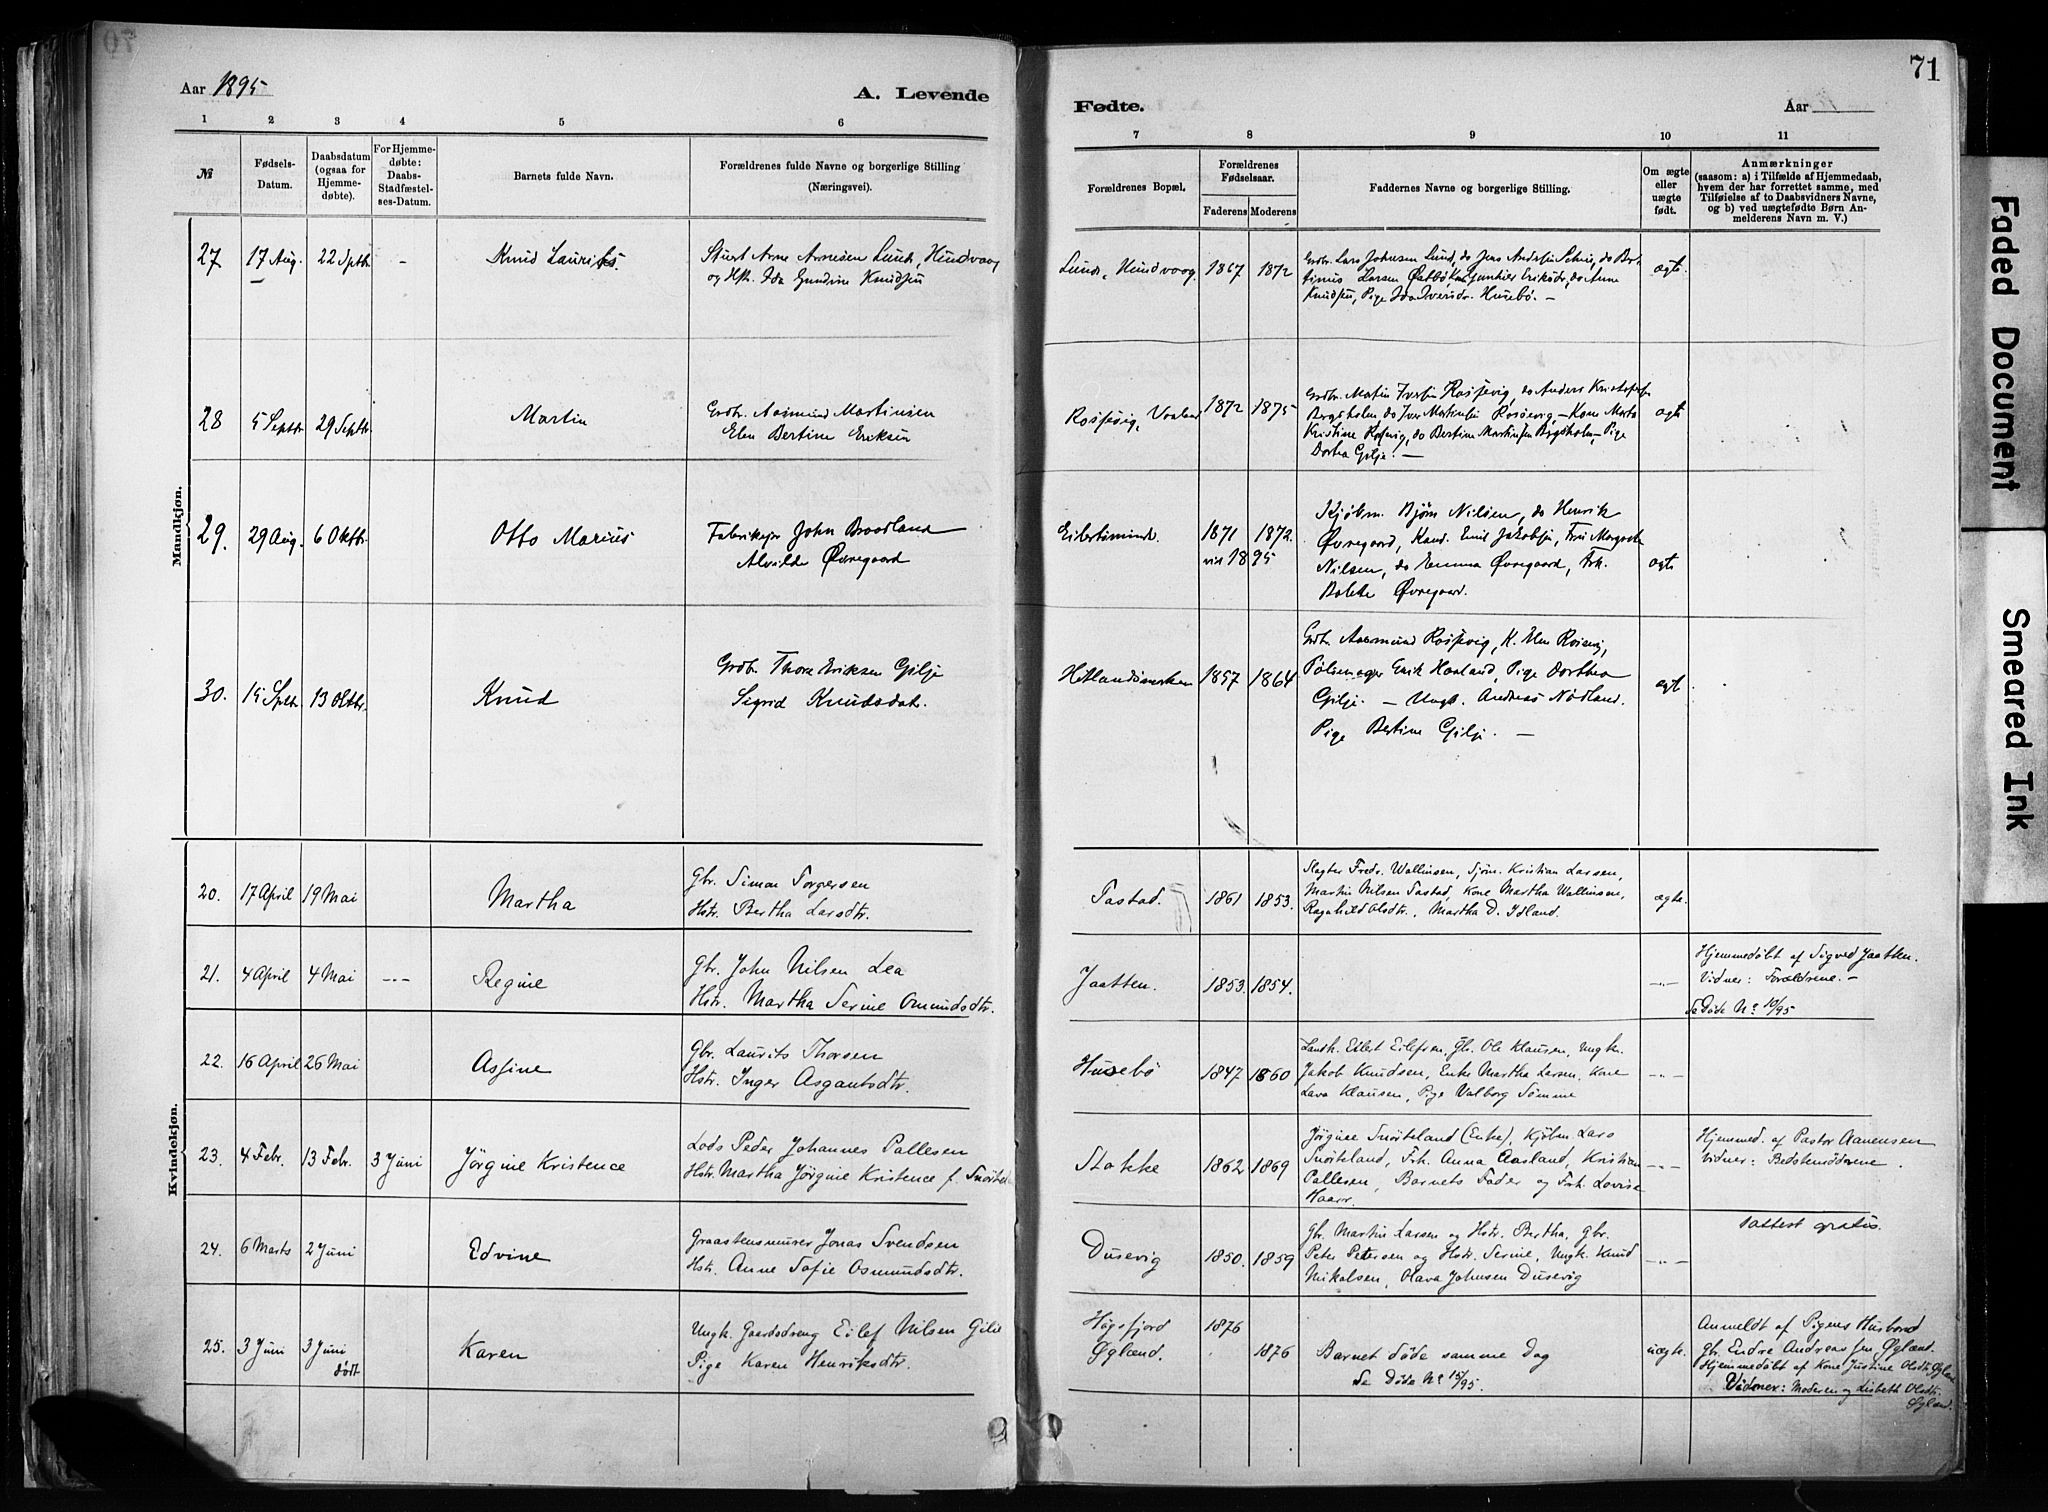 70
71
Aar 1895
A. Levende
Fødte.
Aar
1 2 3 4 5 6 7 8 9 10 11
№
Fødsels-Datum.
Daabsdatum (ogsaa for Hjemmedøbte).
For Hjemmedøbte: Daabs-Stadfæstelses-Datum.
Barnets fulde Navn.
Forældrenes fulde Navne og borgerlige Stilling
(Næringsvei).
Forældrenes Bopæl.
Forældrenes Fødselsaar.
Faderens Moderens
Faddernes Navne og borgerlige Stilling.
Om ægte eller uægte født.
Anmærkninger
(saasom: a) i Tilfælde af Hjemmedaab,
hvem der har forrettet samme, med
Tilføielse af to Daabsvidners Navne,
og b) ved uægtefødte Børn An-
melderens Navn m. V.)
Mandkjøn.
27 17 Aug. 22 Septbr. - Knud Laurits. Arne Arnesen Lund, Hundvaag
og Hst. Ida Gundine Knudsen
Lund, Hundvaag. 1867 1872 Grdbr. Lars Johnsen Lund, do Jens
Larsen Østbø, Gunhild Eriksdr, do Anne
Knudsen, Pige Ida Iversdr. Husebø. - ægte.
28 5 Septbr. 29 Septbr. Martin Grdbr. Aasmund Martinsen
Elen Bertine Eriksen
1872 1875 Grdbr. Iversen do Anders Kristofersen
Bergsholm do Iver Martinsen - Kone Marta
Kristine do Bertine Martinsen - Pige
Dortea Gilje. - ægte
29. 29 Aug. 6 Oktbr. Otto Marius Fabrikeier John Broodland
Alvilde Øvregaard
1871 1872. Kjøbm. Bjørn Nilsen, do Henrik
viet 1895 Øvregaard, Kand. Emil Jakobsen, Fru Margrete
Nilsen, do Emma Øvregaard, Frk.
Bolette Øvregaard. ægte
30. 15 Septbr. 13 Oktbr. Knud Grdbr. Thore Eriksen Gilje
Sigrid Knudsdatr.
Hetlandsmarken 1857 1864 Grdbr. Aasmund K. Elen
Erik Haaland, Pige Dorthea
Gilje. - Ungk. Andreas Nødland.
Pige Bertine Gilje. - ægte
Kvindekjøn.
20. 17 April 19 Mai Martha Gbr. Simon Torgersen
Hstr. Bertha Larsdtr.
Tastad. 1861 1853. Slagter Fredr. Wallinsen, Sjøm. Kristian Larsen,
Martin Nilsen Tastad, Kone Martha Wallinsen,
Ragnhild Olsdtr., Martha D. Idland. ægte.
21. 4 April 4 Mai --- Regine Gbr. John Nilsen Lea
Hstr. Martha Serine Omundsdtr.
Jaatten. 1853. 1854. -"- Hjemmedøbt af Sigved Jaatten.
Vidner: Forældrene. -
Se Døde № 10/95
22. 16 April 26 Mai Assine Gbr. Laurits Thorsen
Hstr. Inger Asgautsdtr.
Husebø 1847 1860 Landh. Eilert Eilefsen, Gbr. Ole Klausen, Ungk.
Jakob Knudsen, Enke Martha Larsen, Kone
Lava Klausen, Pige Valborg Sømme -"-
23. 4 Febr. 13 Febr. 3 Juni Jørgine Kristence Lods Peder Johannes Pallesen
Hstr. Martha Jørgine Kristence f.
Stokke 1862 1869 Jørgine Snørteland (Enke), Kjøbm. Lars
Snørteland, Frk. Anna Aasland, Kristian
Pallesen, Barnets Fader og Frk. Lovise
Haarr. -"- Hjemmed. af Pastor Aanensen
Vidner: Bedstemødrene.
24. 6 Marts 2 Juni Edvine Graastensmurer Jonas Svendsen
Hstr. Anne Sofie Osmundsdtr.
Dusevig 1850. 1859 Gbr. Martin Larsen og Hstr. Bertha, Gbr.
Peter Petersen og Hstr. Serine, Ungk. Knud
Nikolsen, Olava Johnsen Dusevig -"- 1 attest gratis.
25. 3 Juni 3 Juni Karen Ungk. Gaardsdreng Eilef Nilsen Gilje
død Pige Karen Henriksdtr.
Høgsfjord 1876
Øglænd. 1876 Barnet døde samme Dag
Se Døde № 15/95. uægte. Anmeldt af Pigens Husbond
Gbr. Endre Andreassen Øglænd.
Hjemmedøbt af Kone Justine Olsdtr. Øglænd
Vidner: Moderen og Lisbeth Olsdtr.
Øglænd.
Faded Document
Smeared Ink